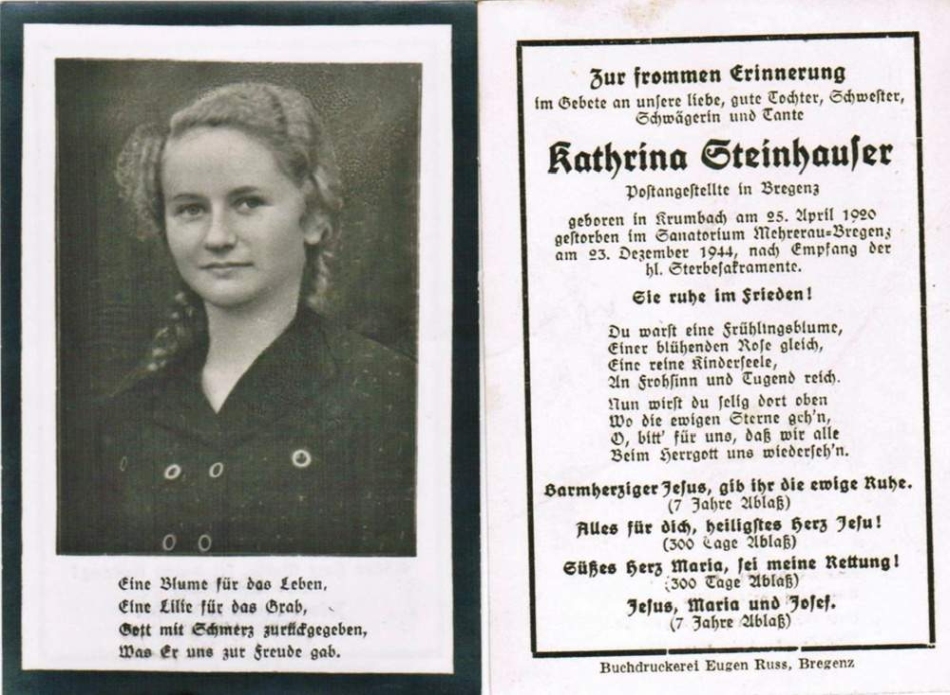 Eine Blume für das Leben,
Eine Lilie für das Grab,
Gott mit Schmerz zurückgegeben,
Was Er uns zur Freude gab.
Zur frommen Erinnerung
im Gebete an unsere liebe, gute Tochter, Schwester,
Schwägerin und Tante
Kathrina Steinhauser
Postangestellte in Bregenz
geboren in Krumbach am 25. April 1920
gestorben im Sanatorium Mehrerau-Bregenz
am 23. Dezember 1944, nach Empfang der
hl. Sterbesakramente.
Sie ruhe im Frieden!
Du warst eine Frühlingsblume,
Einer blühenden Rose gleich,
Eine reine Kinderseele,
An Frohsinn und Tugend reich.
Nun wirst du selig dort oben
Wo die ewigen Sterne geh'n,
O, bitt' für uns, daß wir alle
Beim Herrgott uns wiederseh'n.
Barmherziger Jesus, gib ihr die ewige Ruhe.
(7 Jahre Ablaß)
Alles für dich, heiligstes Herz Jesu!
(300 Tage Ablaß)
Süßes Herz Maria, sei meine Rettung!
(300 Tage Ablaß)
Jesus, Maria und Josef.
(7 Jahre Ablaß)
Buchdruckerei Eugen Russ, Bregenz